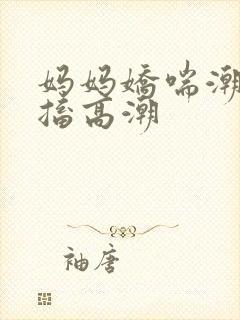 妈妈娇喘潮
搐高潮
袖唐